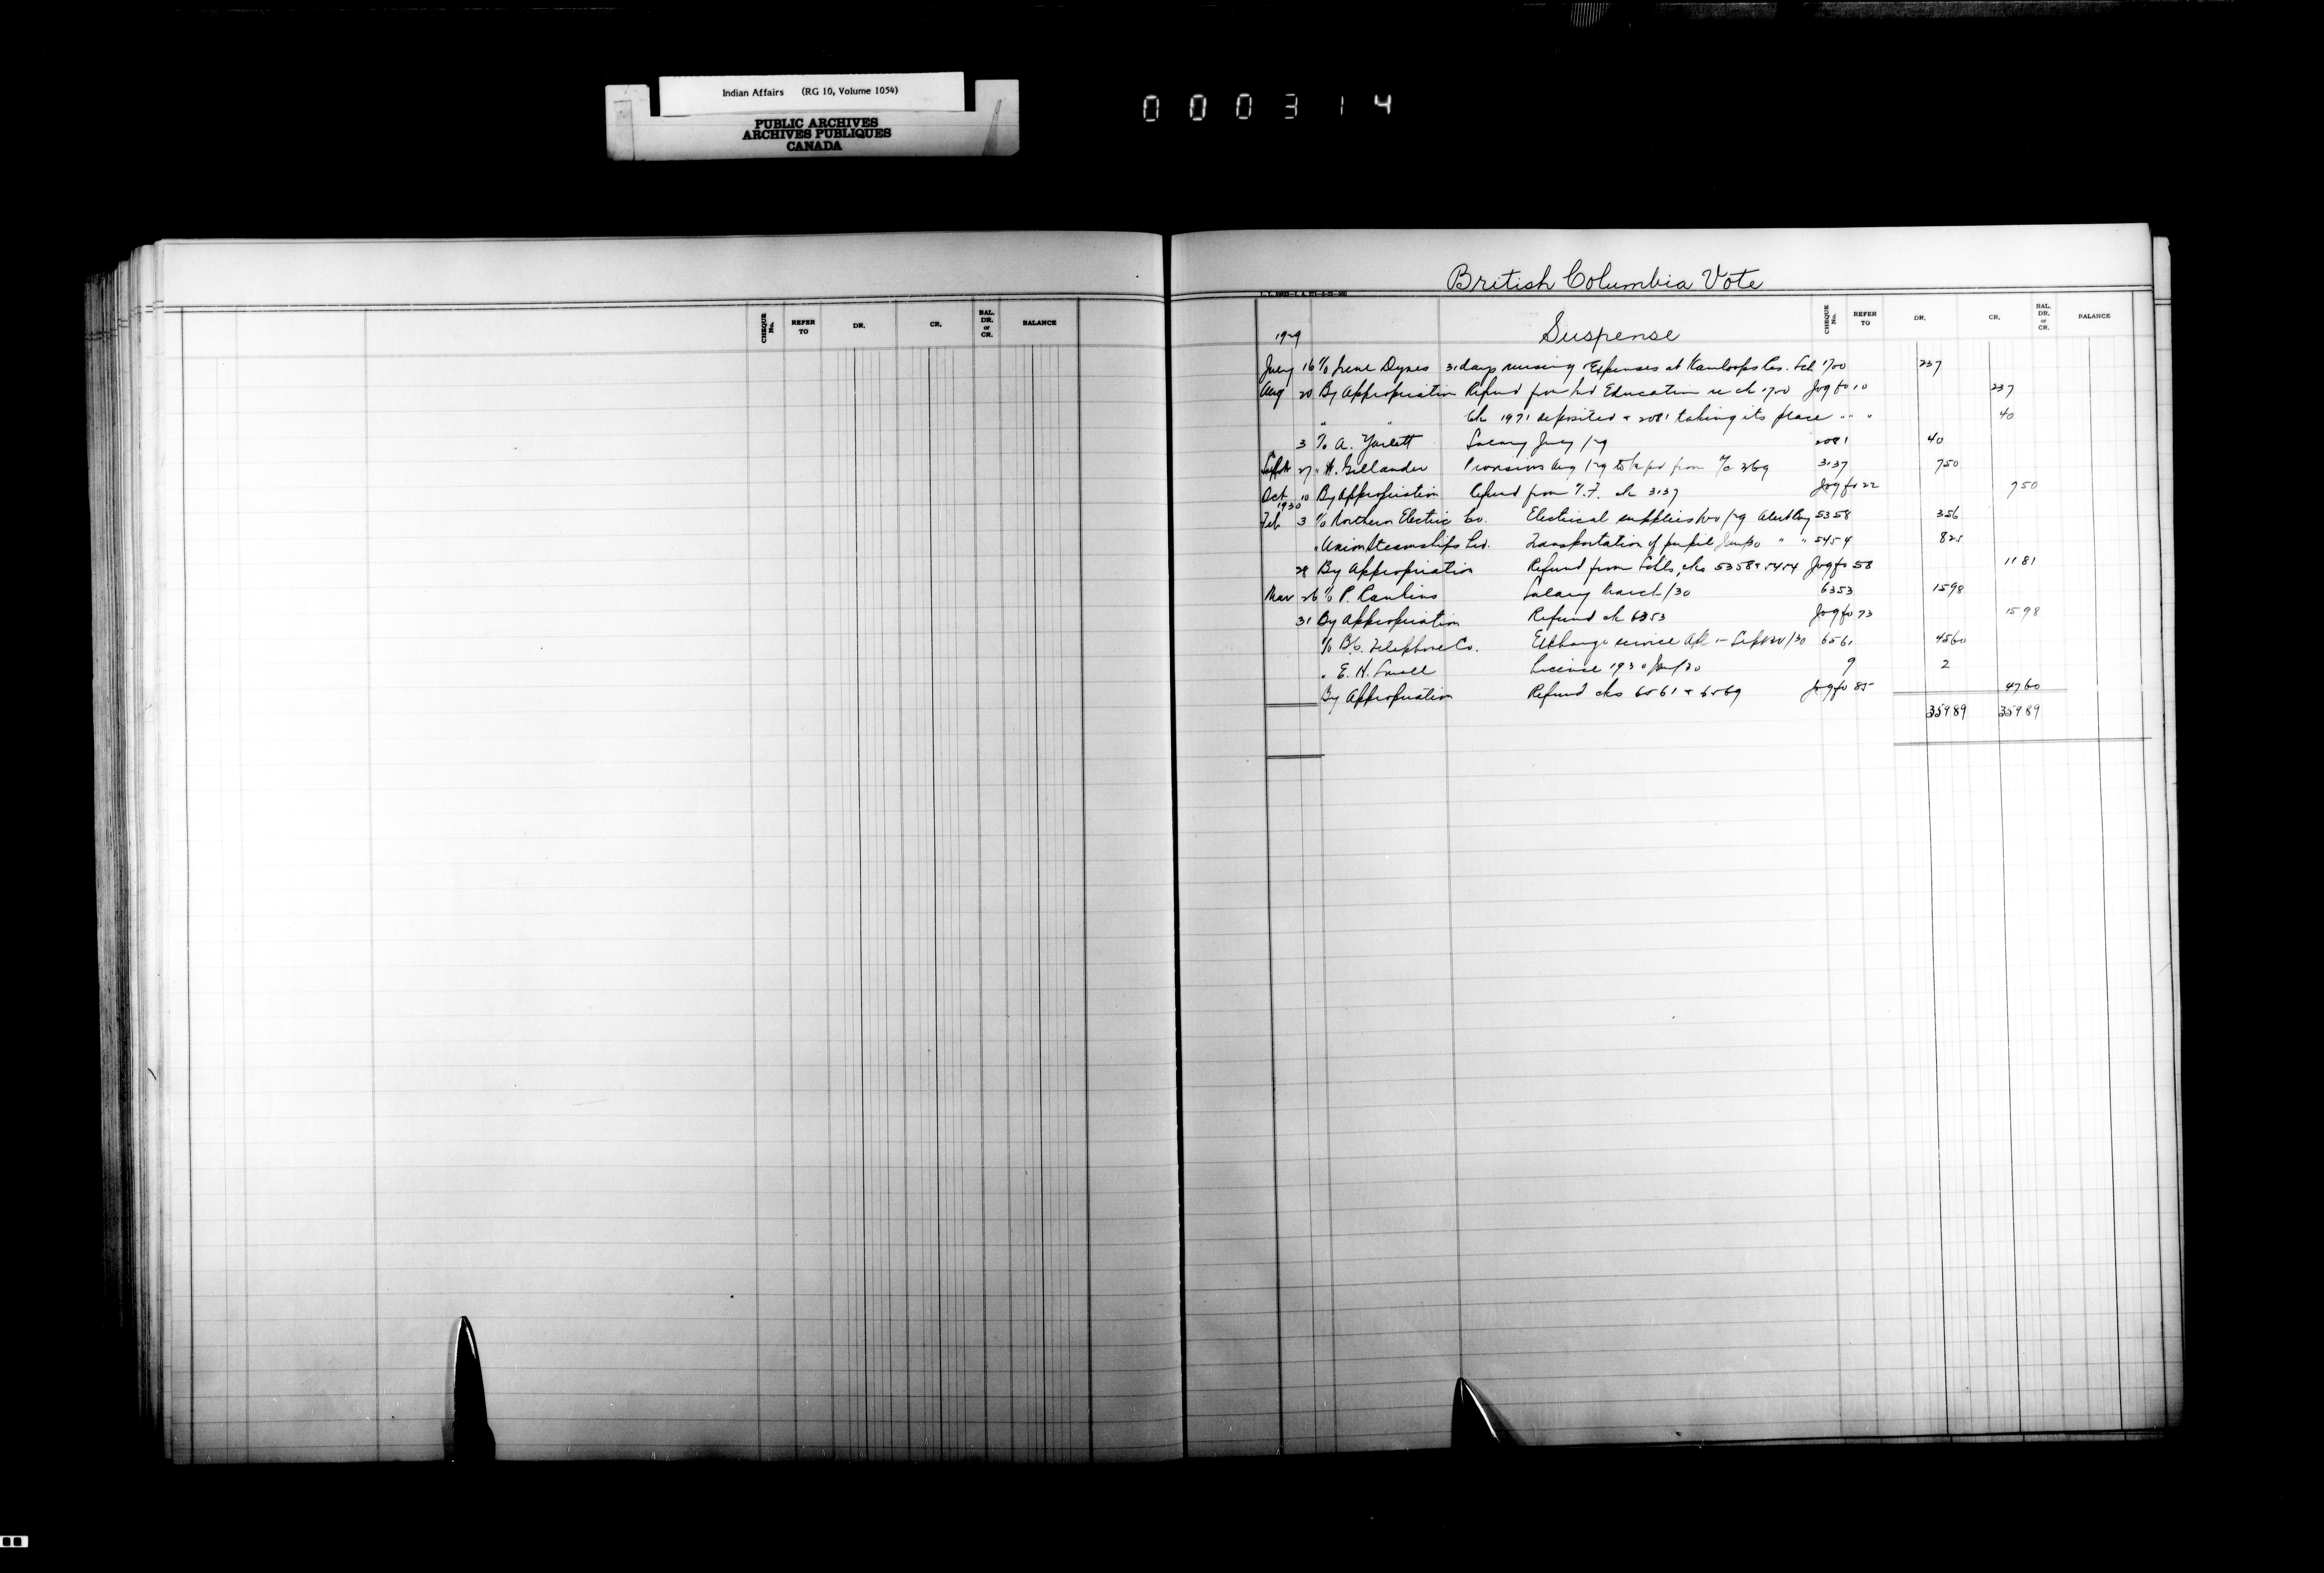 Indian Affairs (RG 10, Volume 1054)
PUBLIC ARCHIVES
ARCHIVES PUBLIQUES
CANADA
000314
British Columbia Vote
CHEQUE No. REFER TO DR. CR. BAL. DR. or CR. BALANCE
CHEQUE No. REFER TO DR. CR. BAL. DR. or CR. BALANCE
1929 Suspense
July 16 % Irene Dynes 31 days nursing Expenses at Kamloops Res. Sch 1700 237
Aug 20 By Appropriation Refund from Ind Education re ch 1700 Jog fo 10 237
" " Ch 1971 deposited & 2081 taking its place " " " 40
3 % A. Salary July /29 2081 40
Sept 27 " H. Gillander Provisions Aug /29 to be pd from 3137 7 50
Oct 10 By Appropriation Refund from T.F. ch 3137 Jog fo 22 7 50
1930
Feb 3 % Northern Electric Co. Electrical supplies Nov /29 Alert Bay 5358 3 56
" Union Steamships Ltd. Transportation of pupil Jan/30 " " 5454 8 25
28 By Appropriation Refund from Schls, chs 5358 & 5454 Jog fo 58 11 81
Mar 26 % P. Rawlins Salary March/30 6353 15 98
31 By Appropriation Refund ch 6353 Jog fo 73 15 98
% B.C. Telephone Co. Exchange service - Sept 30/30 6561 45 60
" E. H. Small License 1930 Jan/30 9 2
By Appropriation Refund chs 6561 & 6569 Jog fo 85 47 60
359 89 359 89